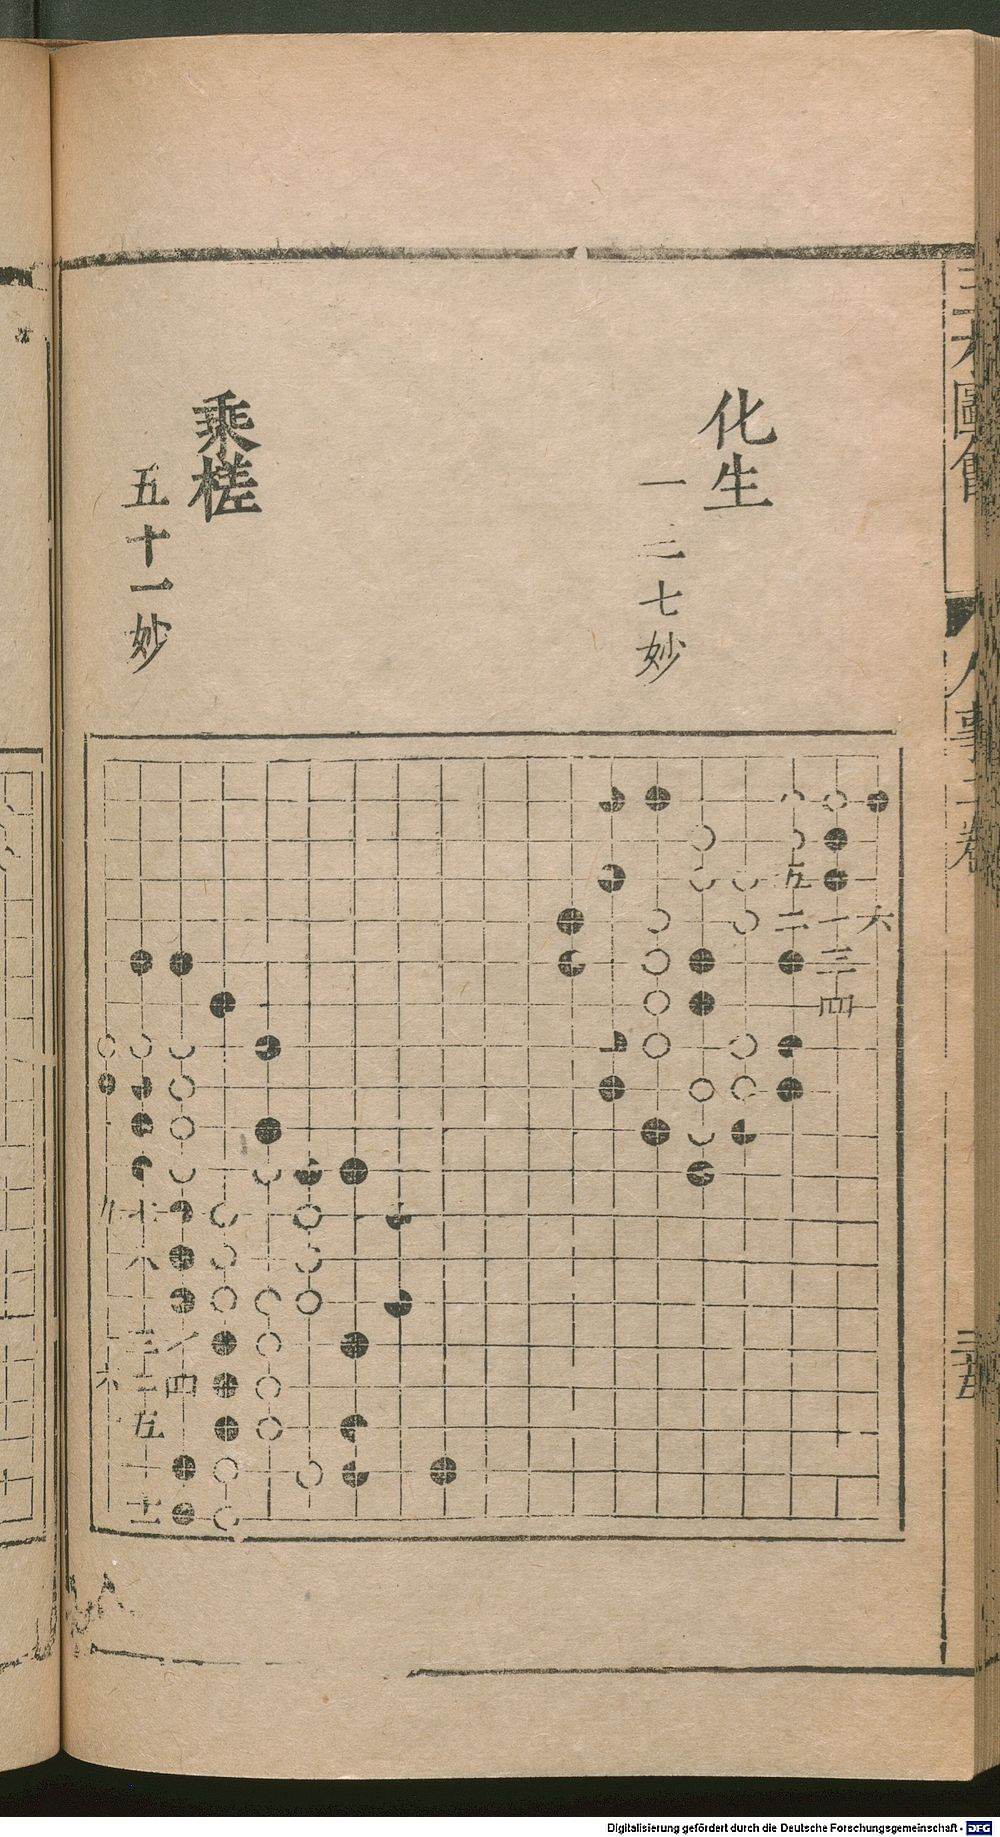 化生
一 二七妙
乘槎
五十一妙
六
一
三
四
五
二
九
七
八
三
一
六
二
四
五
十
十一
Digitalisierung gefördert durch die Deutsche Forschungsgemeinschaft - DFG